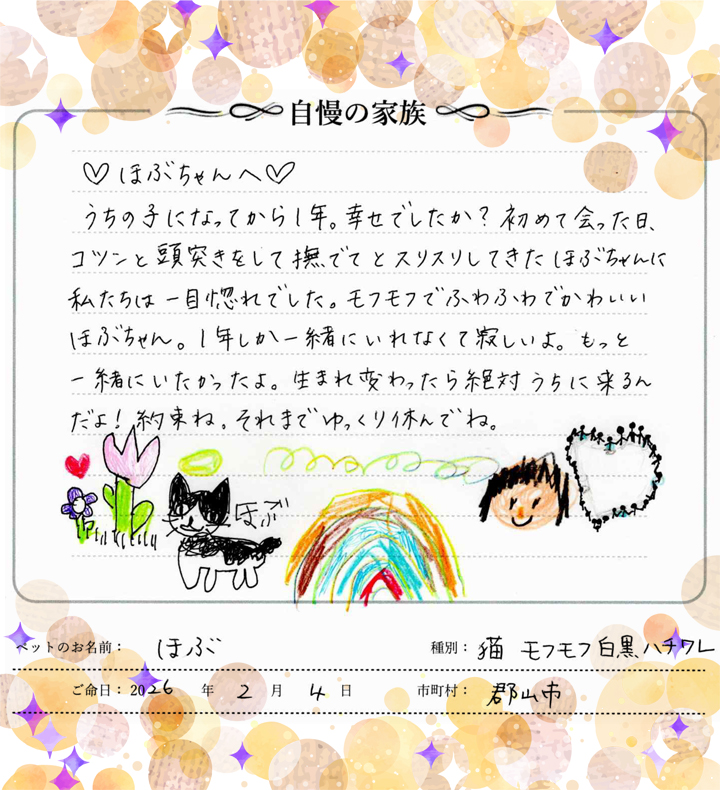 自慢の家族
♡ほぶちゃんへ♡
うちの子になってから1年。幸せでしたか?初めて会った日、
コツンと頭突きをして撫でてとスリスリしてきたほぶちゃんに
私たちは一目惚れでした。モフモフでふわふわでかわいい
ほぶちゃん。1年しか一緒にいれなくて寂しいよ。もっと
一緒にいたかったよ。生まれ変わったら絶対うちに来るん
だよ!約束ね。それまでゆっくり休んでね。
ほぶ
ペットのお名前: ほぶ 種別: 猫 モフモフ白黒ハチワレ
ご命日: 2026 年 2 月 4 日 市町村: 郡山市